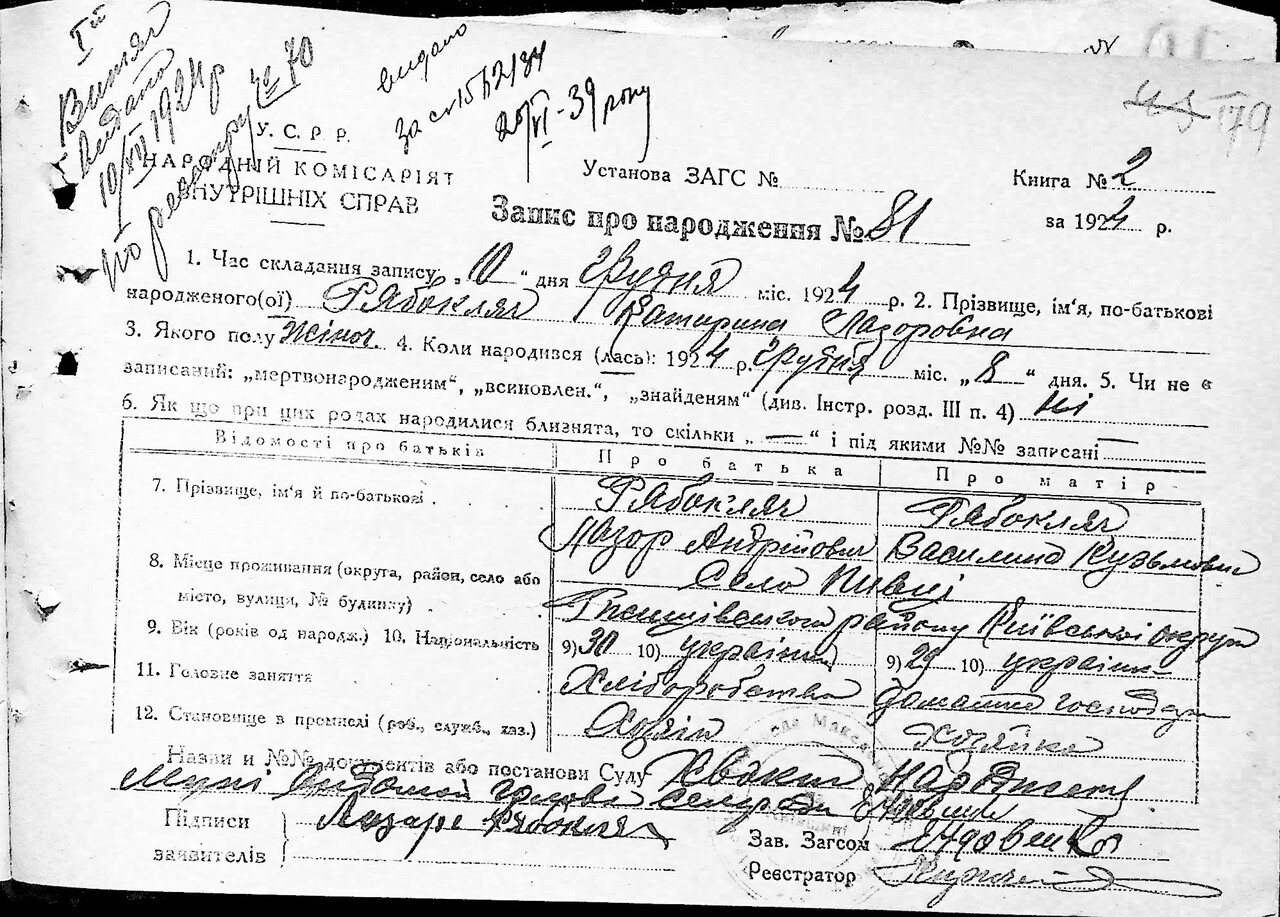 Іий
Витяг
видано
10/XII 1924 р
по реєстру № 70
видано
за
20/VI-39 року
179
У. С. Р. Р.
НАРОДНІЙ КОМІСАРІЯТ
ВНУТРІШНІХ СПРАВ
Установа ЗАГС №
Книга № 2
Запис про народження № 81
за 1924 р.
1. Час складання запису: „ 10 “ дня Грудня міс. 1924 р. 2. Прізвище, ім‘я, по-батькові
народженого(ої) Рябокляч Катерина Лазоровна
3. Якого полу Жіноч. 4. Коли народився (лась): 1924 р. Грудня міс. „ 8 “ дня. 5. Чи не є
записаний: „мертвонародженим“, „всиновлен.“, „знайденям“ (див. Інстр. розд. III п. 4) Ні
6. Як що при цих родах народилися близнята, то скільки „ — “ і під якими №№ записані —
Відомості про батьків Про батька Про матір
7. Прізвище, ім‘я й по-батькові . Рябокляч Рябокляч
Лазор Андрійович Василина Кузьмовна
8. Місце проживання (округа, район, село або Село Півці
місто, вулиця, № будинку) . району Київської округи
9. Вік (років од народж.) 10. Національність 9) 30 10) українец 9) 29 10) україн-
11. Головне заняття Хліборобство домашнє господар
12. Становище в промислі (роб., служб., хаз.) Хозяїн Хозяйка
Назви и №№ документів або постанови Суду
голові сельради
Підписи
заявителів
Лазарь Рябокляч
Зав. Загсом
Реєстратор